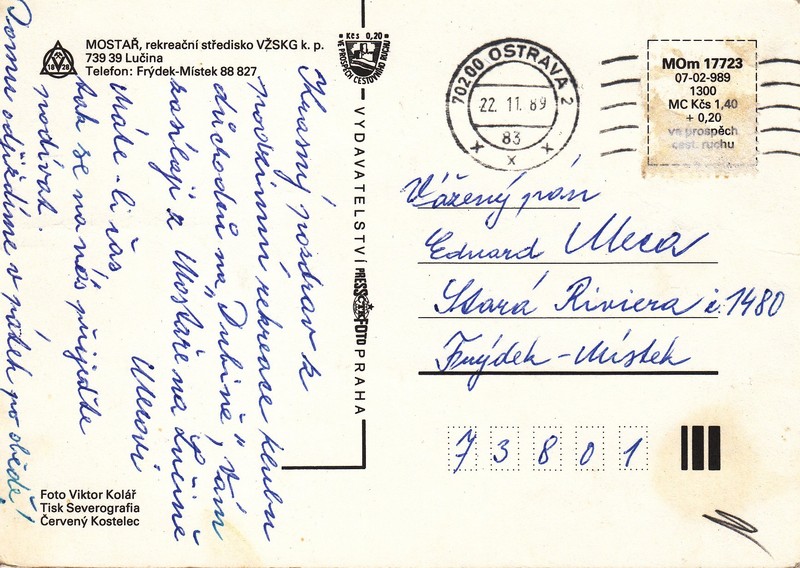 MOSTAŘ, rekreační středisko VŽSKG k. p.
739 39 Lučina
Telefon: Frýdek-Místek 88 827
1828
Kčs 0,20
VE PROSPĚCH CESTOVNÍHO RUCHU
70200 OSTRAVA 2
22. 11. 89
83
MOm 17723
07-02-989
1300
MC Kčs 1,40
+ 0,20
ve prospěch
cest. ruchu
Krásný pozdrav z
podzimní rekreace klubu
důchodců na „Dubině" Vám
posílají z Mostaře na Lučině
Mecovi
Máte-li čas
tak se na nás přijeďte
podívat.
Domů odjíždíme v pátek po obědě!
VYDAVATELSTVÍ PRESSFOTO PRAHA
Vážený pán
Eduard Meca
Stará Riviera č. 1480
Frýdek-Místek
73801
Foto Viktor Kolář
Tisk Severografia
Červený Kostelec